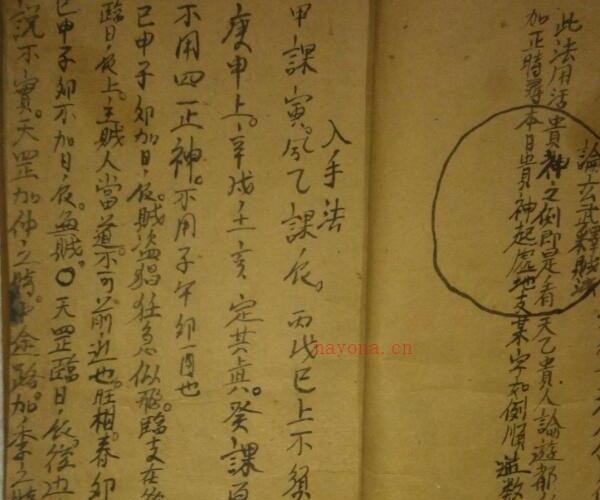 此法用活貴神之例即是看天乙貴人論遊都
加正時尋本日貴神起處地支某字如例順逆數
論玄武釋賊法
入手法
甲課寅乙課辰丙戊巳上不須
庚申上辛戌壬亥定其真癸課
不用四正神不用子午卯酉也
巳申子卯加日辰賊盜猖狂急似飛臨支在
臨日辰上主賊人當道不可前近也旺相春卯
巳申子卯不加日辰無賊○天罡臨日辰後边
說不實天罡加仲之時中途路加季之時
nayona.cn